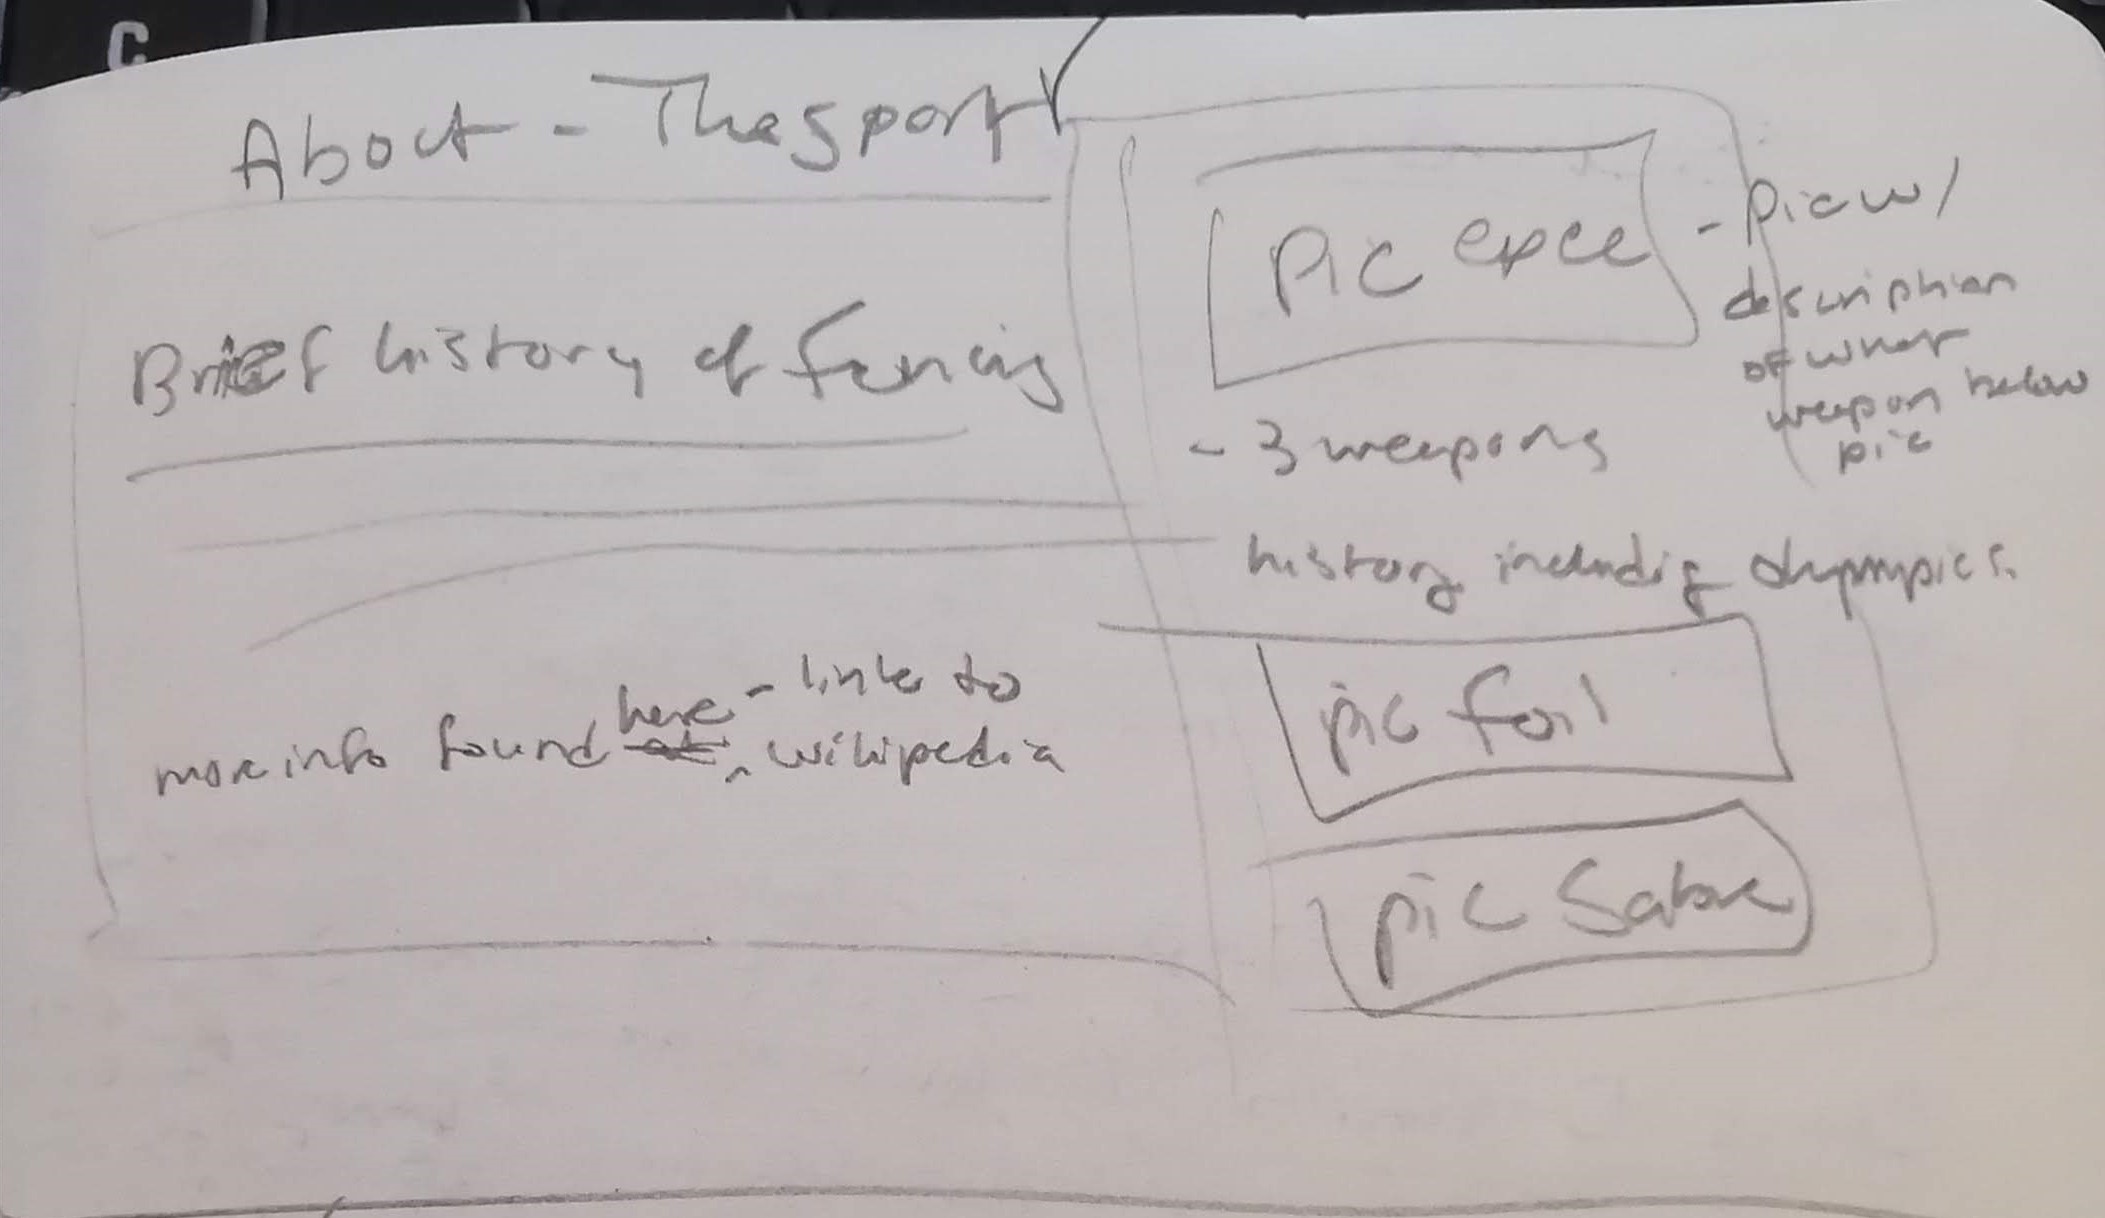 C
About - The sport
Brief history of fencing
more info found here - link to
wikipedia
Pic epee
- pic w/
description
of what
weapon below
pic
- 3 weapons
history including olympics.
pic foil
pic Sabre